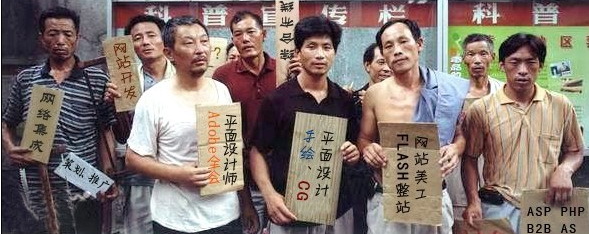 科普宣传栏
科普
网络集成
策划、推广
网站开发
平面设计师
Adobe全会
?
综合布线
平面设计
手绘、CG
网站美工
FLASH整站
ASP PHP
B2B AS